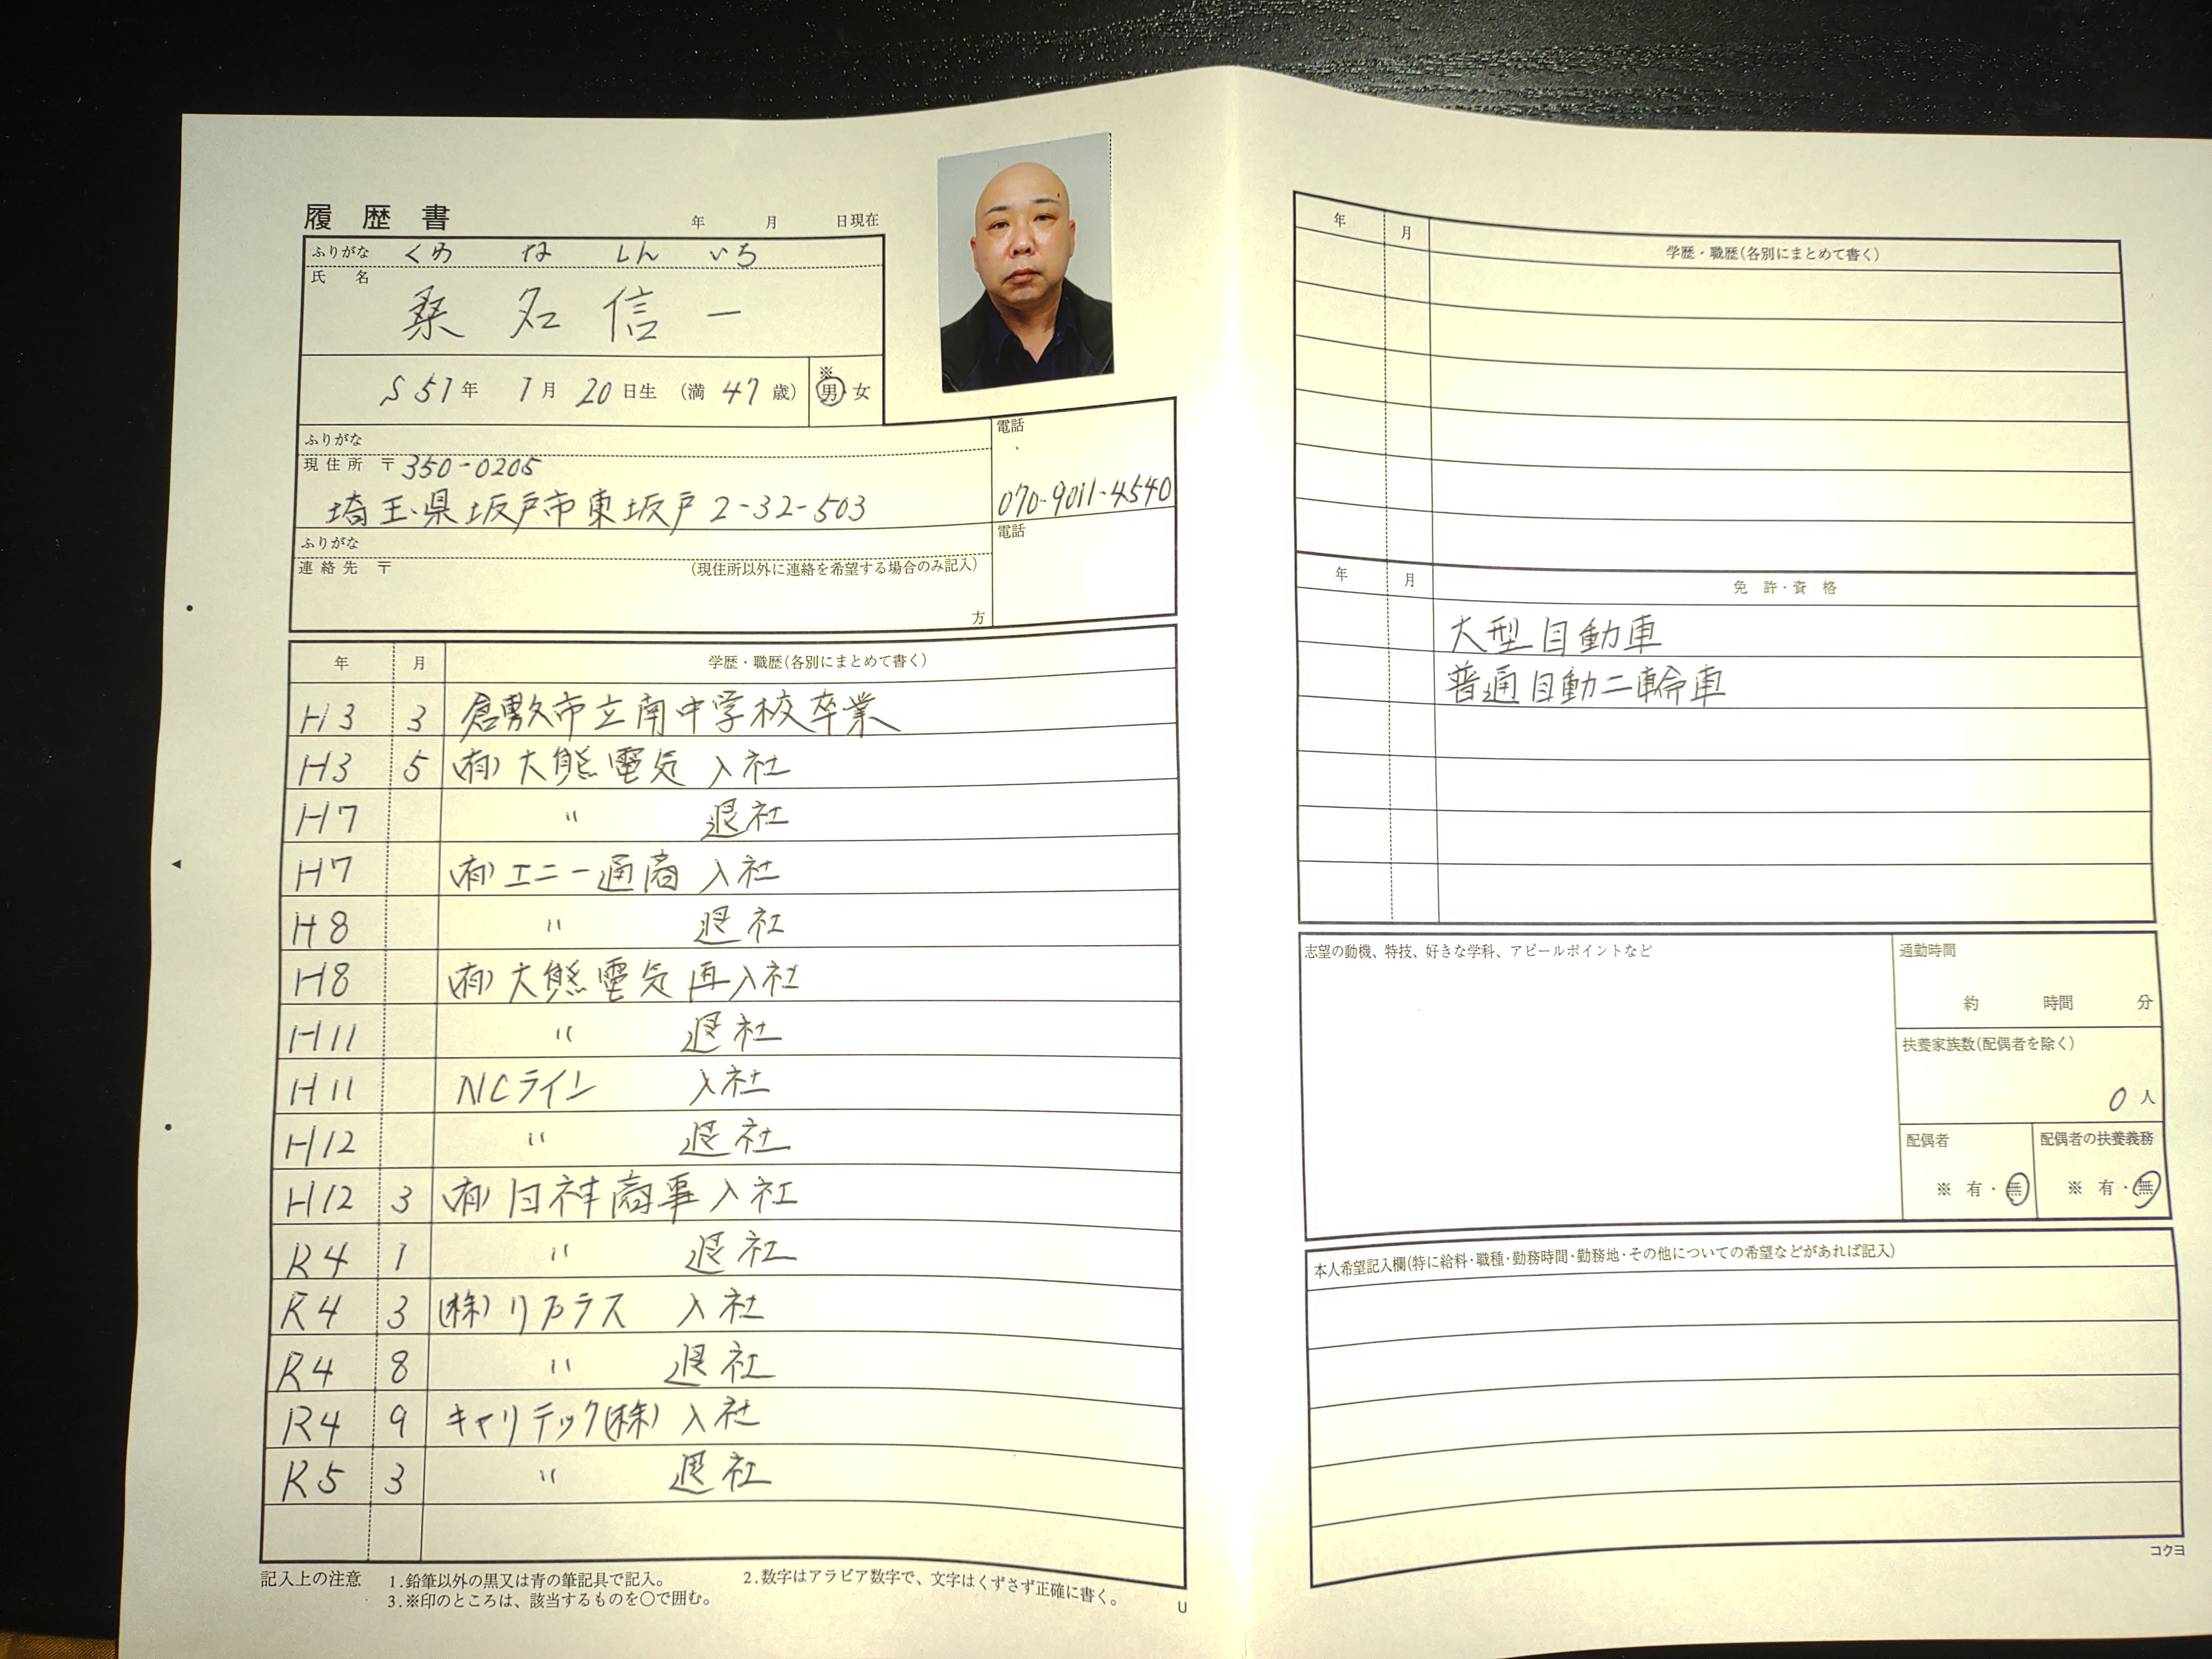 履歴書　年　月　日現在
ふりがな　くわ　な　しん　いち
氏名
桑名信一
S51年　1月　20日生　(満　47歳)　※　男・女
ふりがな　電話
現住所　〒350-0205
埼玉県坂戸市東坂戸2-32-503　070-9011-4540
ふりがな　電話
連絡先　〒　(現住所以外に連絡を希望する場合のみ記入)
方
年　月　学歴・職歴(各別にまとめて書く)
H3　3　倉敷市立南中学校卒業
H3　5　(有)大熊電気　入社
H7　〃　退社
H7　(有)エニー通商　入社
H8　〃　退社
H8　(有)大熊電気　再入社
H11　〃　退社
H11　NCライン　入社
H12　〃　退社
H12　3　(有)日神商事　入社
R4　1　〃　退社
R4　3　(株)　入社
R4　8　〃　退社
R4　9　キャリテック(株)　入社
R5　3　〃　退社
記入上の注意　1.鉛筆以外の黒又は青の筆記具で記入。　2.数字はアラビア数字で、文字はくずさず正確に書く。
3.※印のところは、該当するものを○で囲む。
U
年　月　学歴・職歴(各別にまとめて書く)
年　月　免許・資格
大型自動車
普通自動二輪車
志望の動機、特技、好きな学科、アピールポイントなど
通勤時間
約　時間　分
扶養家族数(配偶者を除く)
0人
配偶者　配偶者の扶養義務
※　有・無　※　有・無
本人希望記入欄(特に給料・職種・勤務時間・勤務地・その他についての希望などがあれば記入)
コクヨ